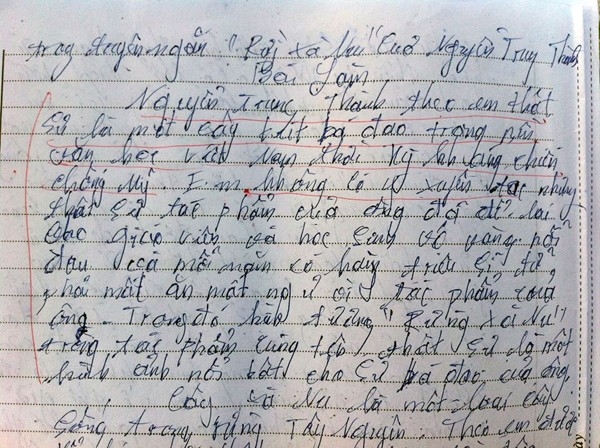 trog truyện ngắn "Rừg xà Nu" Của Nguyễn Trug Thành
Bài Làm
Nguyễn Trung Thành theo em thật
sử là một cây bút bá đạo trong nền
văn học việt Nam thời kỳ kháng chiến
chống Mỹ. Em không có ý xuyên tạc nhưng
thật sử tác phẩm của ông đã để lại
cho giáo viên và học sinh vô vàng nỗi
đau và mỗi năm có hàng triệu sĩ tử
phải mất ăn mất ngủ vì tác phẩm của
ông. Trong đó hình tượng "Rừng xà Nu"
trong tác phẩm cùng tên thật sử là một
hình ảnh nổi bật cho sử bá đạo của ông.
Cây xà Nu là một loại cây
sống trong rừng Tây Nguyên Theo em được